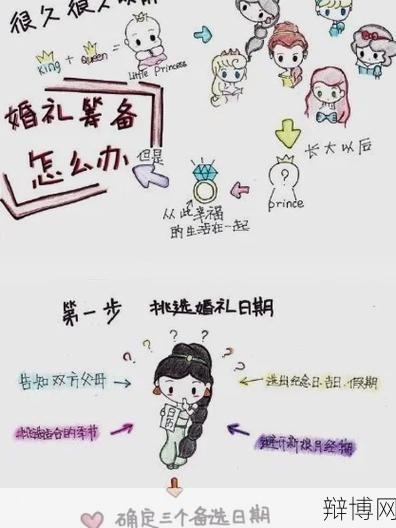 很久很久以前
king + queen =
Little Princess
婚礼筹备
怎么办
但是
长大以后
?
prince
从此幸福
的生活在一起
第一步 挑选婚礼日期
? ? ? ?
告知双方父母
选出纪念日.吉日.假期
日历
挑选适合的季节
避开新娘月经期
确定三个备选日期
辩博网